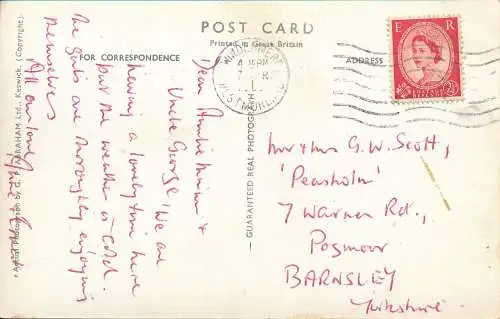 POST CARD
Printed in Great Britain
FOR CORRESPONDENCE
ADDRESS
E R
POSTAGE REVENUE
2½D
WINDERMERE
WESTMORLAND
GUARANTEED REAL PHOTOGRAPH
Aerial Photograph by G. P. ABRAHAM Ltd., Keswick. (Copyright)
Dear Auntie &
Uncle George, We are
having a lovely time here
but the weather is cold.
The girls are thoroughly enjoying
themselves
All our love,
Mr & Mrs G. W. Scott,
'Peasholm'
7 Warner Rd.,
Pogmoor
BARNSLEY
Yorkshire.